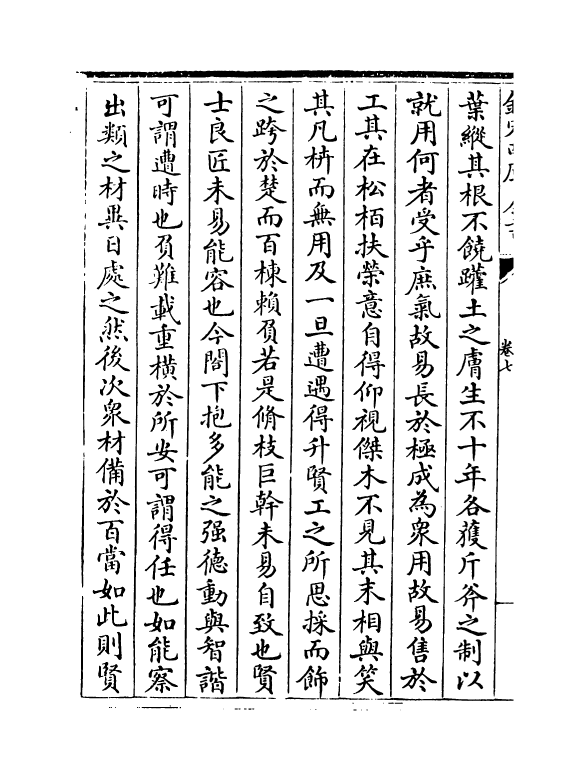 卷七
葉縱其根不饒躣土之膚生不十年各獲斤斧之制以
就用何者受乎庶氣故易長於極成為衆用故易售於
工其在松栢扶榮意自得仰視傑木不見其末相與笑
其凡枿而無用及一旦遭遇得升賢工之所思採而飾
之跨於楚而百棟賴負若是脩枝巨幹未易自致也賢
士良匠未易能容也今閤下抱多能之强德動與智諧
可謂遭時也負難載重橫於所安可謂得任也如能察
出類之材異日處之然後次衆材備於百當如此則賢